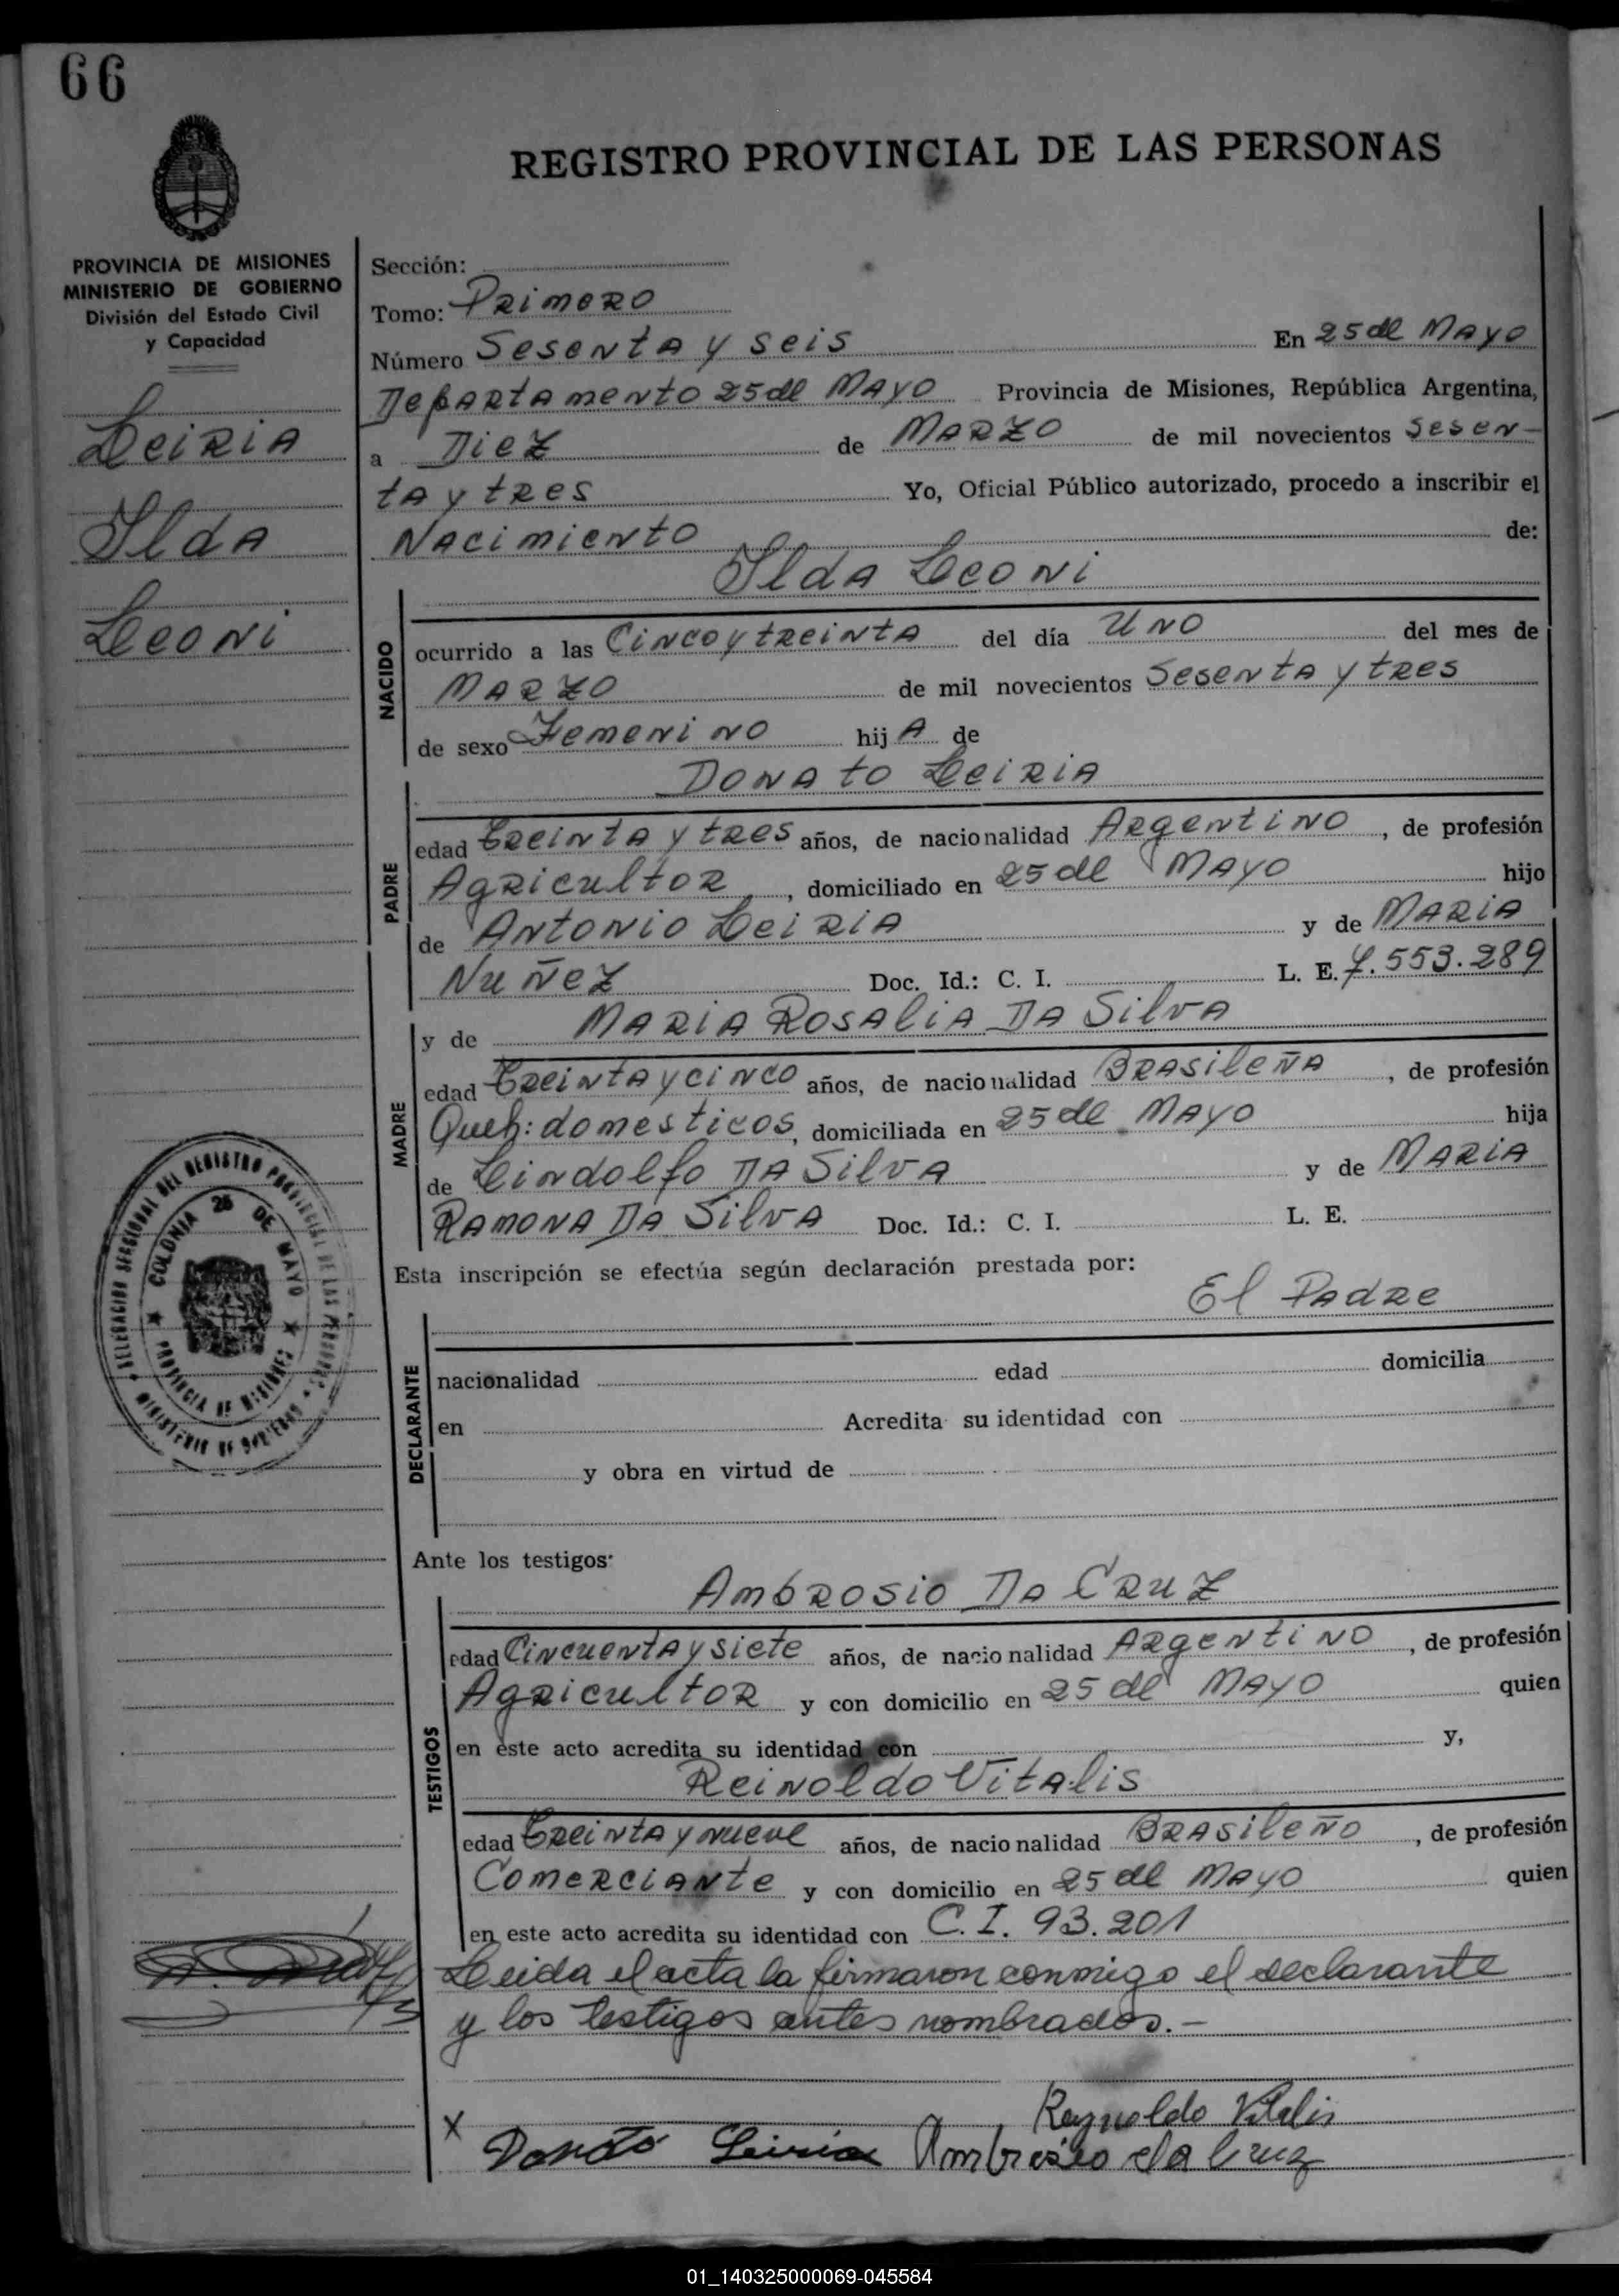 66
REGISTRO PROVINCIAL DE LAS PERSONAS
PROVINCIA DE MISIONES
MINISTERIO DE GOBIERNO
División del Estado Civil
y Capacidad
Leiria
Ilda
Leoni
DELEGACION SECCIONAL DEL REGISTRO PROVINCIAL DE LAS PERSONAS
COLONIA 25 DE MAYO
PROVINCIA DE MISIONES
MINISTERIO DE GOBIERNO
Sección:
Tomo: Primero
Número Sesenta y seis En 25 de Mayo
Departamento 25 de Mayo Provincia de Misiones, República Argentina,
a Diez de Marzo de mil novecientos Sesen-
ta y tres Yo, Oficial Público autorizado, procedo a inscribir el
Nacimiento de:
Ilda Leoni
NACIDO
ocurrido a las Cinco y treinta del día Uno del mes de
Marzo de mil novecientos Sesenta y tres
de sexo Femenino hija de
Donato Leiria
PADRE
edad Treinta y tres años, de nacionalidad Argentino, de profesión
Agricultor, domiciliado en 25 de Mayo hijo
de Antonio Leiria y de Maria
Nuñez Doc. Id.: C. I. L. E. 7.553.289
y de Maria Rosalia Da Silva
MADRE
edad Treinta y cinco años, de nacionalidad Brasileña, de profesión
Queh: domésticos, domiciliada en 25 de Mayo hija
de Lindolfo Da Silva y de Maria
Ramona Da Silva Doc. Id.: C. I. L. E.
Esta inscripción se efectúa según declaración prestada por:
El Padre
DECLARANTE
nacionalidad edad domicilia
en Acredita su identidad con
y obra en virtud de
Ante los testigos:
Ambrosio Da Cruz
TESTIGOS
edad Cincuenta y siete años, de nacionalidad Argentino, de profesión
Agricultor y con domicilio en 25 de Mayo quien
en este acto acredita su identidad con y,
Reinoldo Vitalis
edad Treinta y nueve años, de nacionalidad Brasileño, de profesión
Comerciante y con domicilio en 25 de Mayo quien
en este acto acredita su identidad con C. I. 93.201
Leida el acta la firmaron conmigo el declarante
y los testigos antes nombrados.-
Reynoldo Vitalis
X Donato Leiria Ambrosio da Cruz
01_140325000069-045584